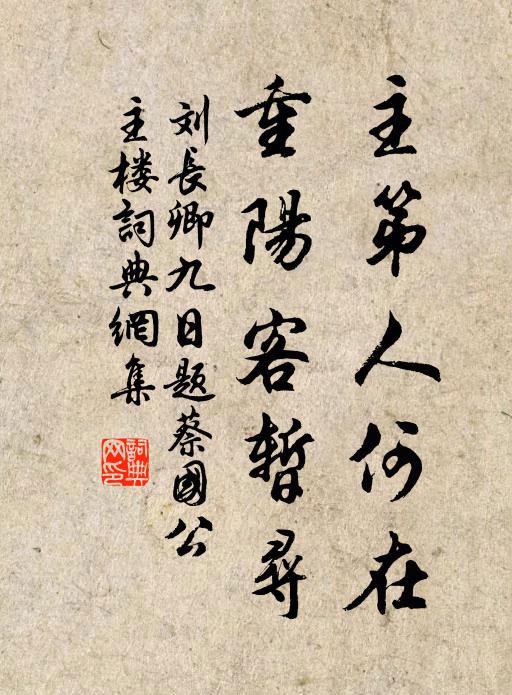 主第人何在
重陽客暫尋
刘長卿九日题蔡國公
主楼詞典網集
詞典网印